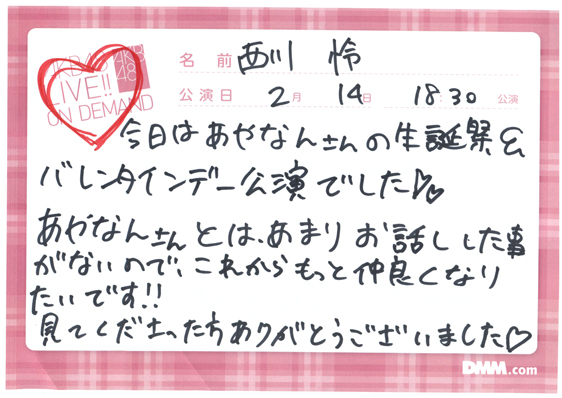 AKB48
LIVE!!
ON DEMAND
AKB
48
名前 西川 怜
公演日 2月 14日 18:30 公演
今日はあやなんさんの生誕祭&
バレンタインデー公演でした♡♡
あやなんさんとは、あまりお話しした事
がないので、これからもっと仲良くなり
たいです!!
見てくださった方ありがとうございました♡
DMM.com